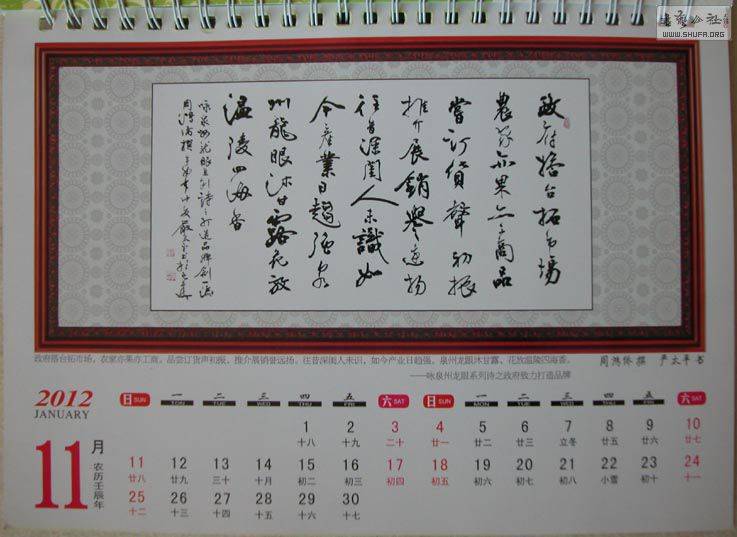 書藝公社
WWW.SHUFA.ORG
政府搭台拓市場
農家亦果亦工商品
嘗訂貨聲初振
推介展銷譽遠揚
往昔深閨人未識如
今產業日趨強泉
州龍眼沐甘露花放
溫陵四海香
咏泉州龍眼系列詩之打造品牌創一流
政府搭台拓市场，农家亦果亦工商。品尝订货声初振、推介展销誉远扬。往昔深闺人未识，如今产业日趋强。泉州龙眼沐甘露、花放温陵四海香。 周鸿修 撰 严太平 书
——咏泉州龙眼系列诗之政府致力打造品牌
2012
JANUARY
11月
农历壬辰年
日 SUN 一 MON 二 TUE 三 WED 四 THU 五 FRI 六 SAT 日 SUN 一 MON 二 TUE 三 WED 四 THU 五 FRI 六 SAT
1 2 3 4 5 6 7 8 9 10
十八 十九 二十 廿一 廿二 廿三 立冬 廿五 廿六 廿七
11 12 13 14 15 16 17 18 19 20 21 22 23 24
廿八 廿九 三十 十月 初二 初三 初四 初五 初六 初七 初八 小雪 初十 十一
25 26 27 28 29 30
十二 十三 十四 十五 十六 十七